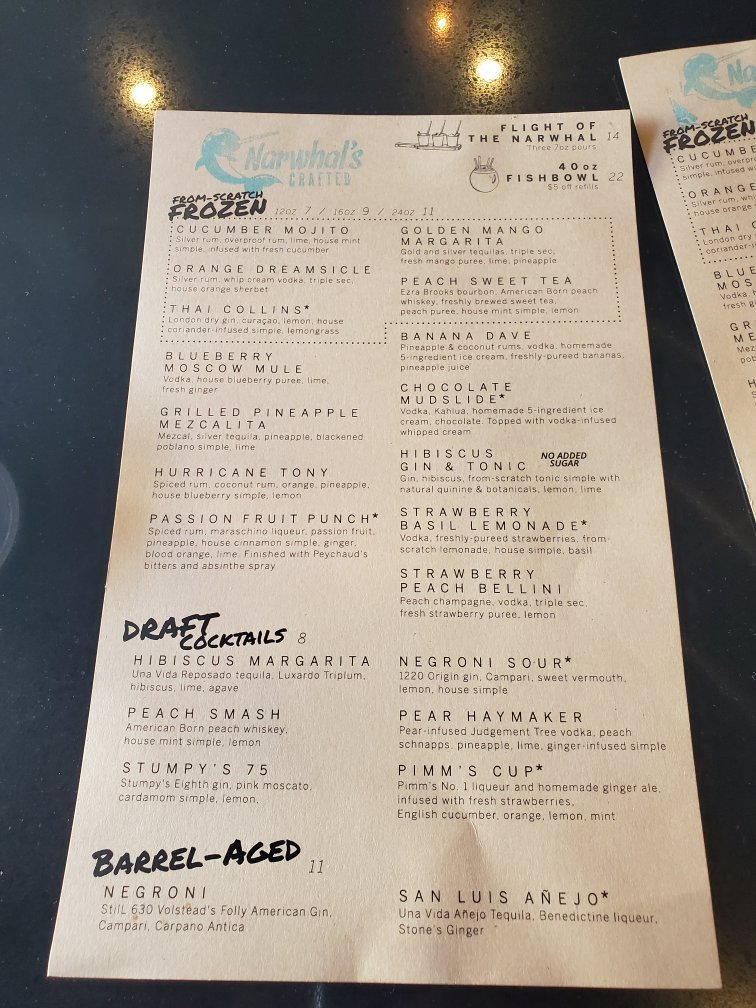 Narwhal's
CRAFTED
FLIGHT OF
THE NARWHAL 14
Three 7oz pours
40oz
FISHBOWL 22
$5 off refills
FROM-SCRATCH
FROZEN 12OZ 7 / 16OZ 9 / 24OZ 11
CUCUMBER MOJITO
Silver rum, overproof rum, lime, house mint
simple, infused with fresh cucumber
ORANGE DREAMSICLE
Silver rum, whip cream vodka, triple sec,
house orange sherbet
THAI COLLINS*
London dry gin, curaçao, lemon, house
coriander-infused simple, lemongrass
BLUEBERRY
MOSCOW MULE
Vodka, house blueberry puree, lime,
fresh ginger
GRILLED PINEAPPLE
MEZCALITA
Mezcal, silver tequila, pineapple, blackened
poblano simple, lime
HURRICANE TONY
Spiced rum, coconut rum, orange, pineapple,
house blueberry simple, lemon
PASSION FRUIT PUNCH*
Spiced rum, maraschino liqueur, passion fruit,
pineapple, house cinnamon simple, ginger,
blood orange, lime. Finished with Peychaud's
bitters and absinthe spray
GOLDEN MANGO
MARGARITA
Gold and silver tequilas, triple sec,
fresh mango puree, lime, pineapple
PEACH SWEET TEA
Ezra Brooks bourbon, American Born peach
whiskey, freshly brewed sweet tea,
peach puree, house mint simple, lemon
BANANA DAVE
Pineapple & coconut rums, vodka, homemade
5-ingredient ice cream, freshly-pureed bananas,
pineapple juice
CHOCOLATE
MUDSLIDE*
Vodka, Kahlua, homemade 5-ingredient ice
cream, chocolate. Topped with vodka-infused
whipped cream
HIBISCUS
GIN & TONIC NO ADDED
SUGAR
Gin, hibiscus, from-scratch tonic simple with
natural quinine & botanicals, lemon, lime
STRAWBERRY
BASIL LEMONADE*
Vodka, freshly-pureed strawberries, from-
scratch lemonade, house simple, basil
STRAWBERRY
PEACH BELLINI
Peach champagne, vodka, triple sec,
fresh strawberry puree, lemon
DRAFT
COCKTAILS 8
HIBISCUS MARGARITA
Una Vida Reposado tequila, Luxardo Triplum,
hibiscus, lime, agave
PEACH SMASH
American Born peach whiskey,
house mint simple, lemon
STUMPY'S 75
Stumpy's Eighth gin, pink moscato,
cardamom simple, lemon,
NEGRONI SOUR*
1220 Origin gin, Campari, sweet vermouth,
lemon, house simple
PEAR HAYMAKER
Pear-infused Judgement Tree vodka, peach
schnapps, pineapple, lime, ginger-infused simple
PIMM'S CUP*
Pimm's No. 1 liqueur and homemade ginger ale,
infused with fresh strawberries,
English cucumber, orange, lemon, mint
BARREL-AGED 11
NEGRONI
StilL 630 Volstead's Folly American Gin,
Campari, Carpano Antica
SAN LUIS AÑEJO*
Una Vida Añejo Tequila, Benedictine liqueur,
Stone's Ginger
FROM-SCRATCH
FROZEN